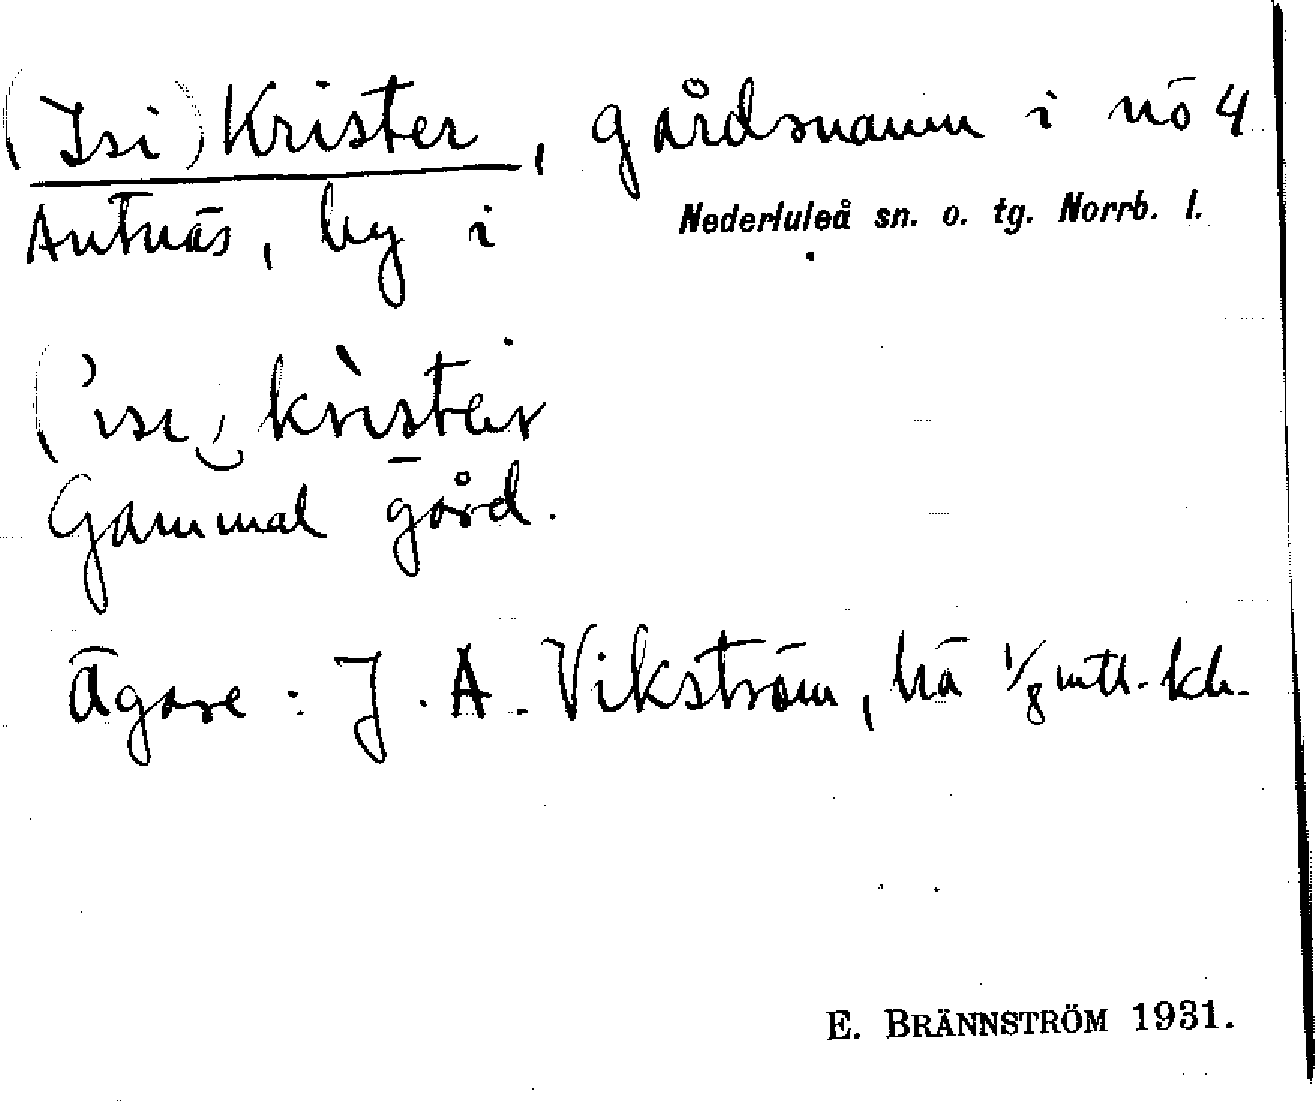 (Isi) Krister, gårdsnamn i nö 4
Antnäs, by i Nederluleå sn. o. tg. Norrb. l.
Gammal gård.
Ägare: J. A. Vikström, bä 1/8 mtl. kh.
E. BRÄNNSTRÖM 1931.